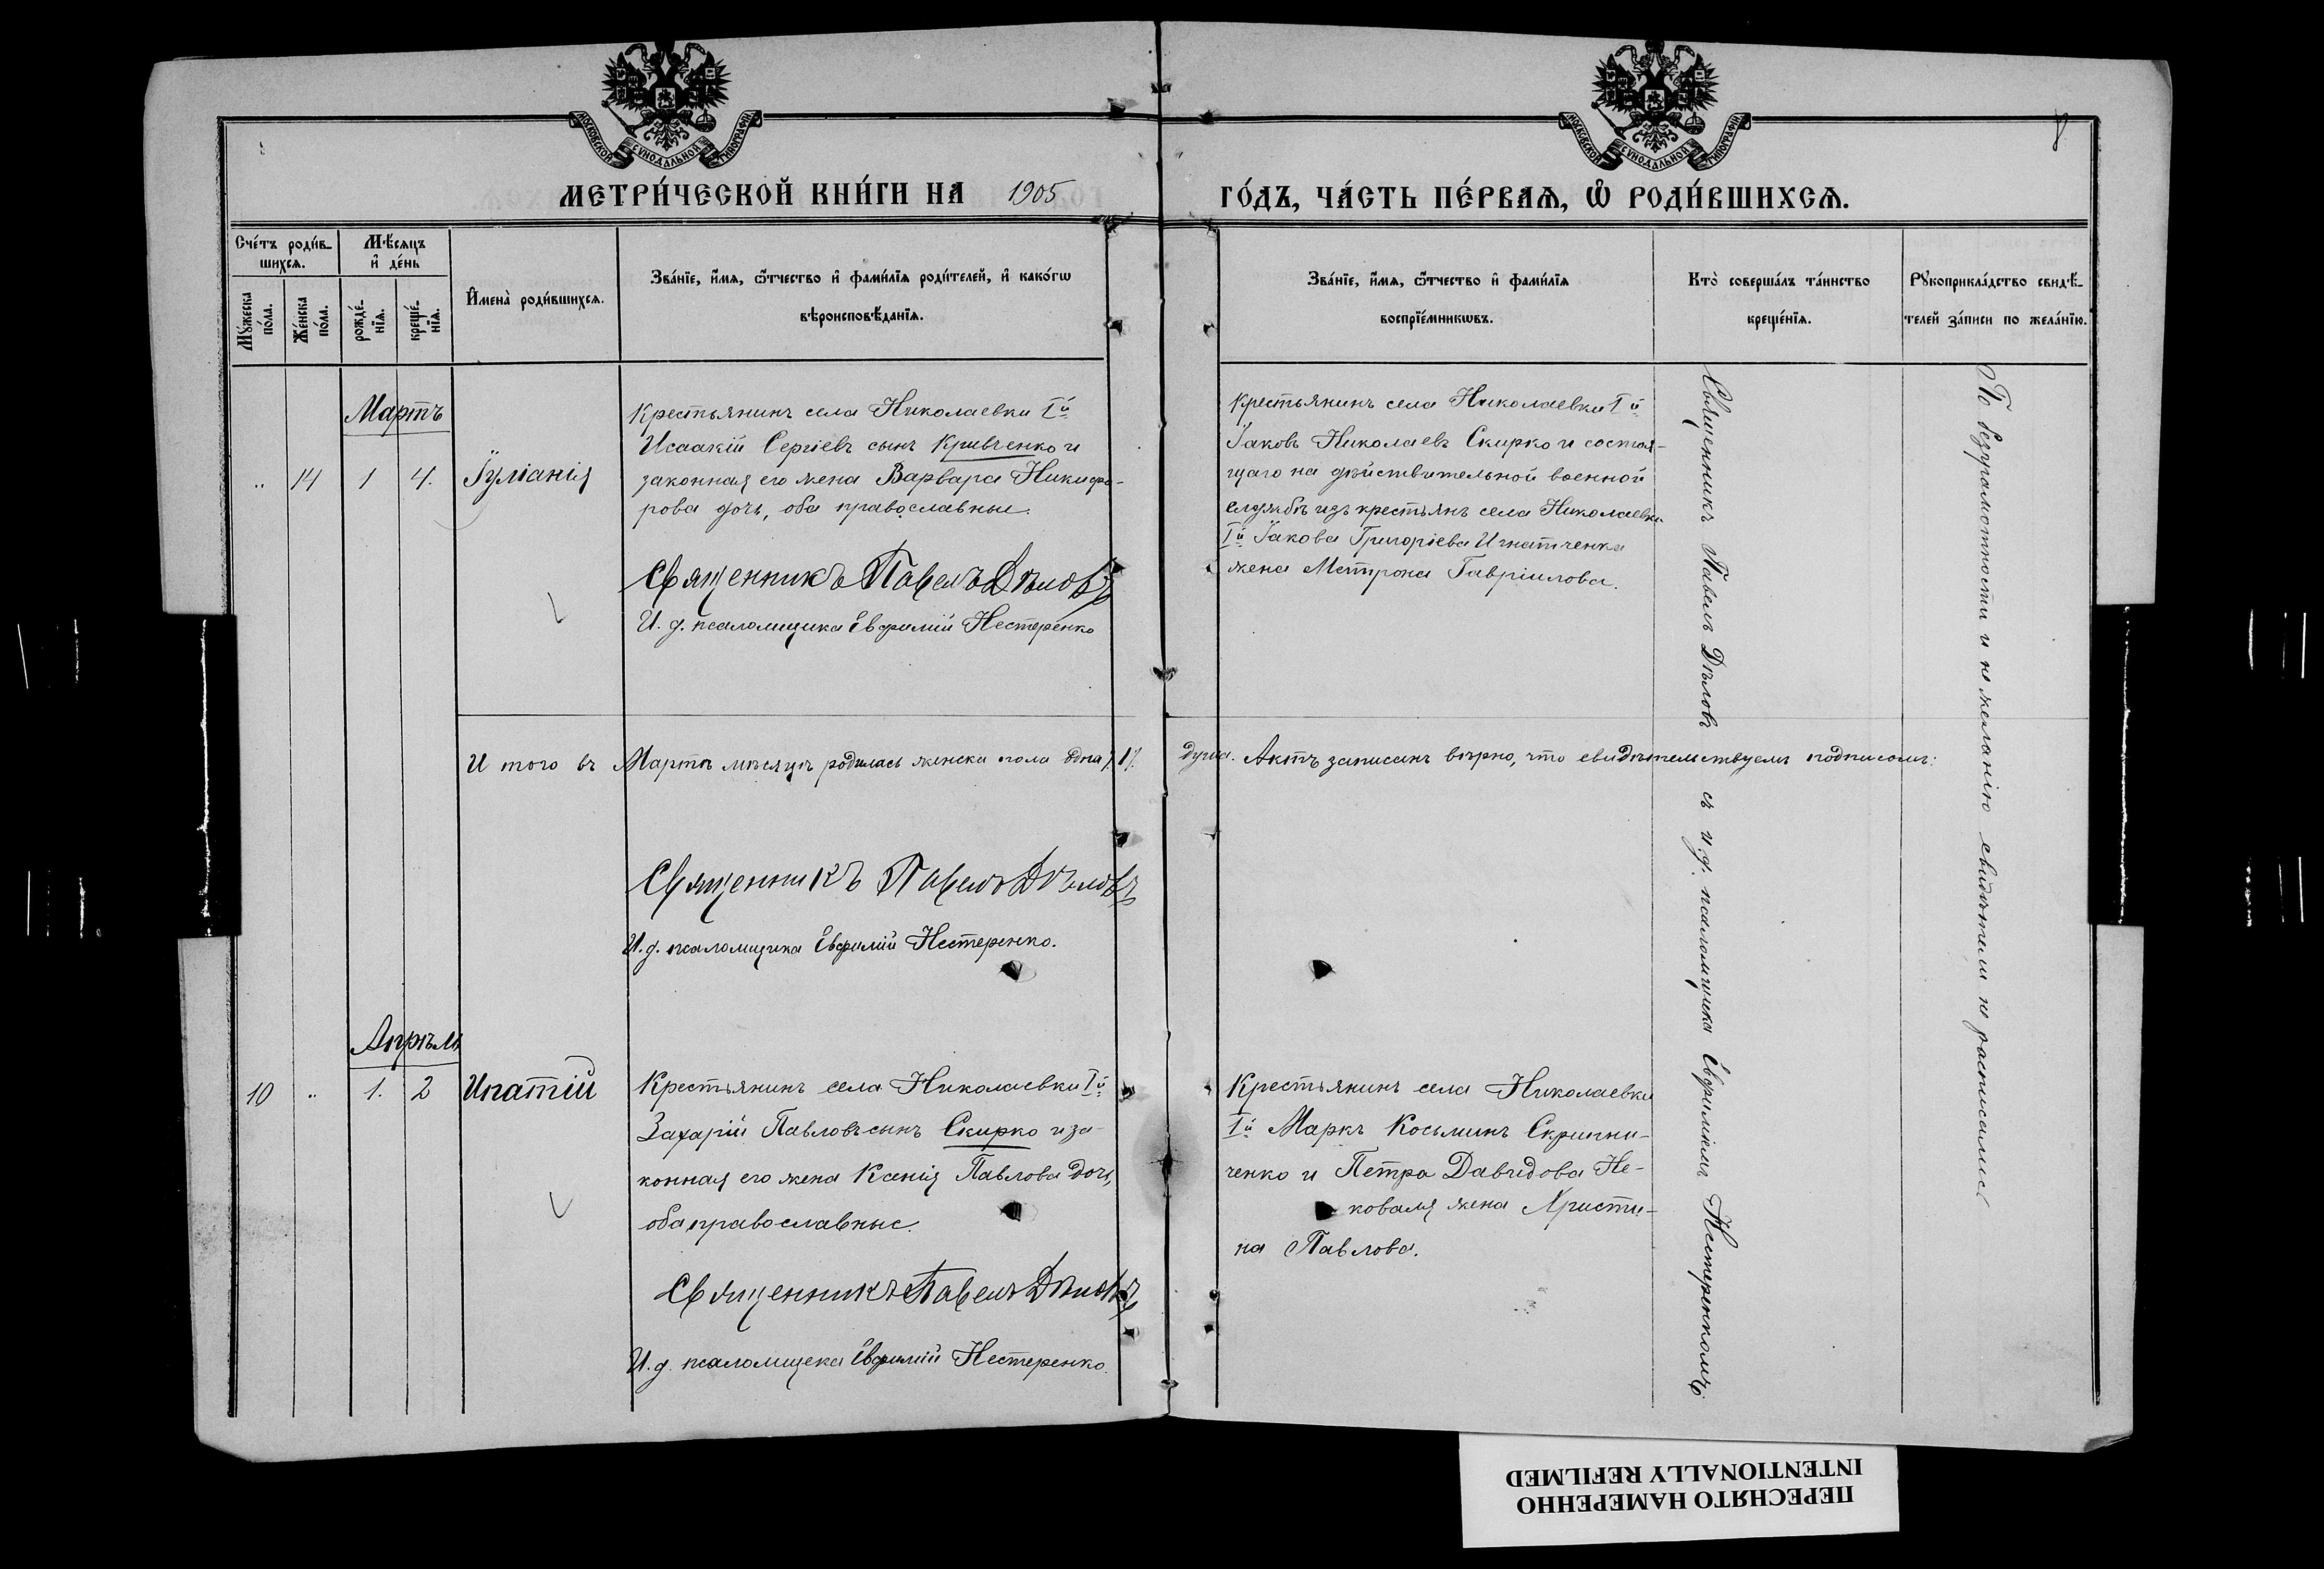 МОСКОВСКОЙ СѴНОДАЛЬНОЙ ТИПОГРАФІИ
МОСКОВСКОЙ СѴНОДАЛЬНОЙ ТИПОГРАФІИ
8
МЕТРИ́ЧЕСКОЙ КНИ́ГИ НА 1905
ГО́ДЪ, ЧА́СТЬ ПЕ́РВАѦ, Ѡ҆ РОДИ́ВШИХСѦ.
Сче́тъ роди́в-
шихсѧ.
Мꙋ́жеска по́ла.
Же́нска по́ла.
Мѣ́сѧцъ
и҆ де́нь
рожде́-нїѧ.
креще́-нїѧ.
И҆мена̀ роди́вшихсѧ.
Зва́нїе, и҆́мѧ, ѻ҆́тчество и҆ фами́лїѧ роди́телей, и҆ како́гѡ
вѣроисповѣ́данїѧ.
Зва́нїе, и҆́мѧ, ѻ҆́тчество и҆ фами́лїѧ
воспрїе́мникѡвъ.
Кто̀ соверша́лъ та́инство
креще́нїѧ.
Рꙋкоприкла́дство свидѣ́-
телей за́писи по жела́нїю.
Мартъ
„ 14 1 4. Іуліанія
Крестьянинъ села Николаевки Iй
Исаакій Сергіевъ сынъ Кривченко и
законная его жена Варвара Никифо-
рова дочь, оба православные.
Священникъ Павелъ Дѣловъ
И. д. псаломщика Евфимій Нестеренко
Крестьянинъ села Николаевки Iй
Іаковъ Николаевъ Скирко и состоя-
щаго на дѣйствительной военной
службѣ изъ крестьянъ села Николаевки
Iй Іакова Григоріева Игнатченка
жена Матрона Гавріилова.
Священникъ Павелъ Дѣловъ съ и.д. псаломщика Евфиміемъ Нестеренкомъ.
По безграмотности и нежеланію свидѣтели не расписались
И того въ Мартѣ мѣсяцѣ родилась женска пола одна /1/ душа. Актъ записанъ вѣрно, что свидѣтельствуемъ подписомъ:
Священникъ Павелъ Дѣловъ
И. д. псаломщика Евфимій Нестеренко.
Апрѣль
10 „ 1. 2 Ипатій
Крестьянинъ села Николаевки Iй
Захарій Павловъ сынъ Скирко и за-
конная его жена Ксенія Павлова дочь,
оба православные.
Священникъ Павелъ Дѣловъ
И. д. псаломщика Евфимій Нестеренко
Крестьянинъ села Николаевки
Iй Маркъ Косьминъ Скрипни-
ченко и Петра Давидова Не-
коваля жена Христи-
на Павлова.
ПЕРЕСНЯТО НАМЕРЕННО
INTENTIONALLY REFILMED